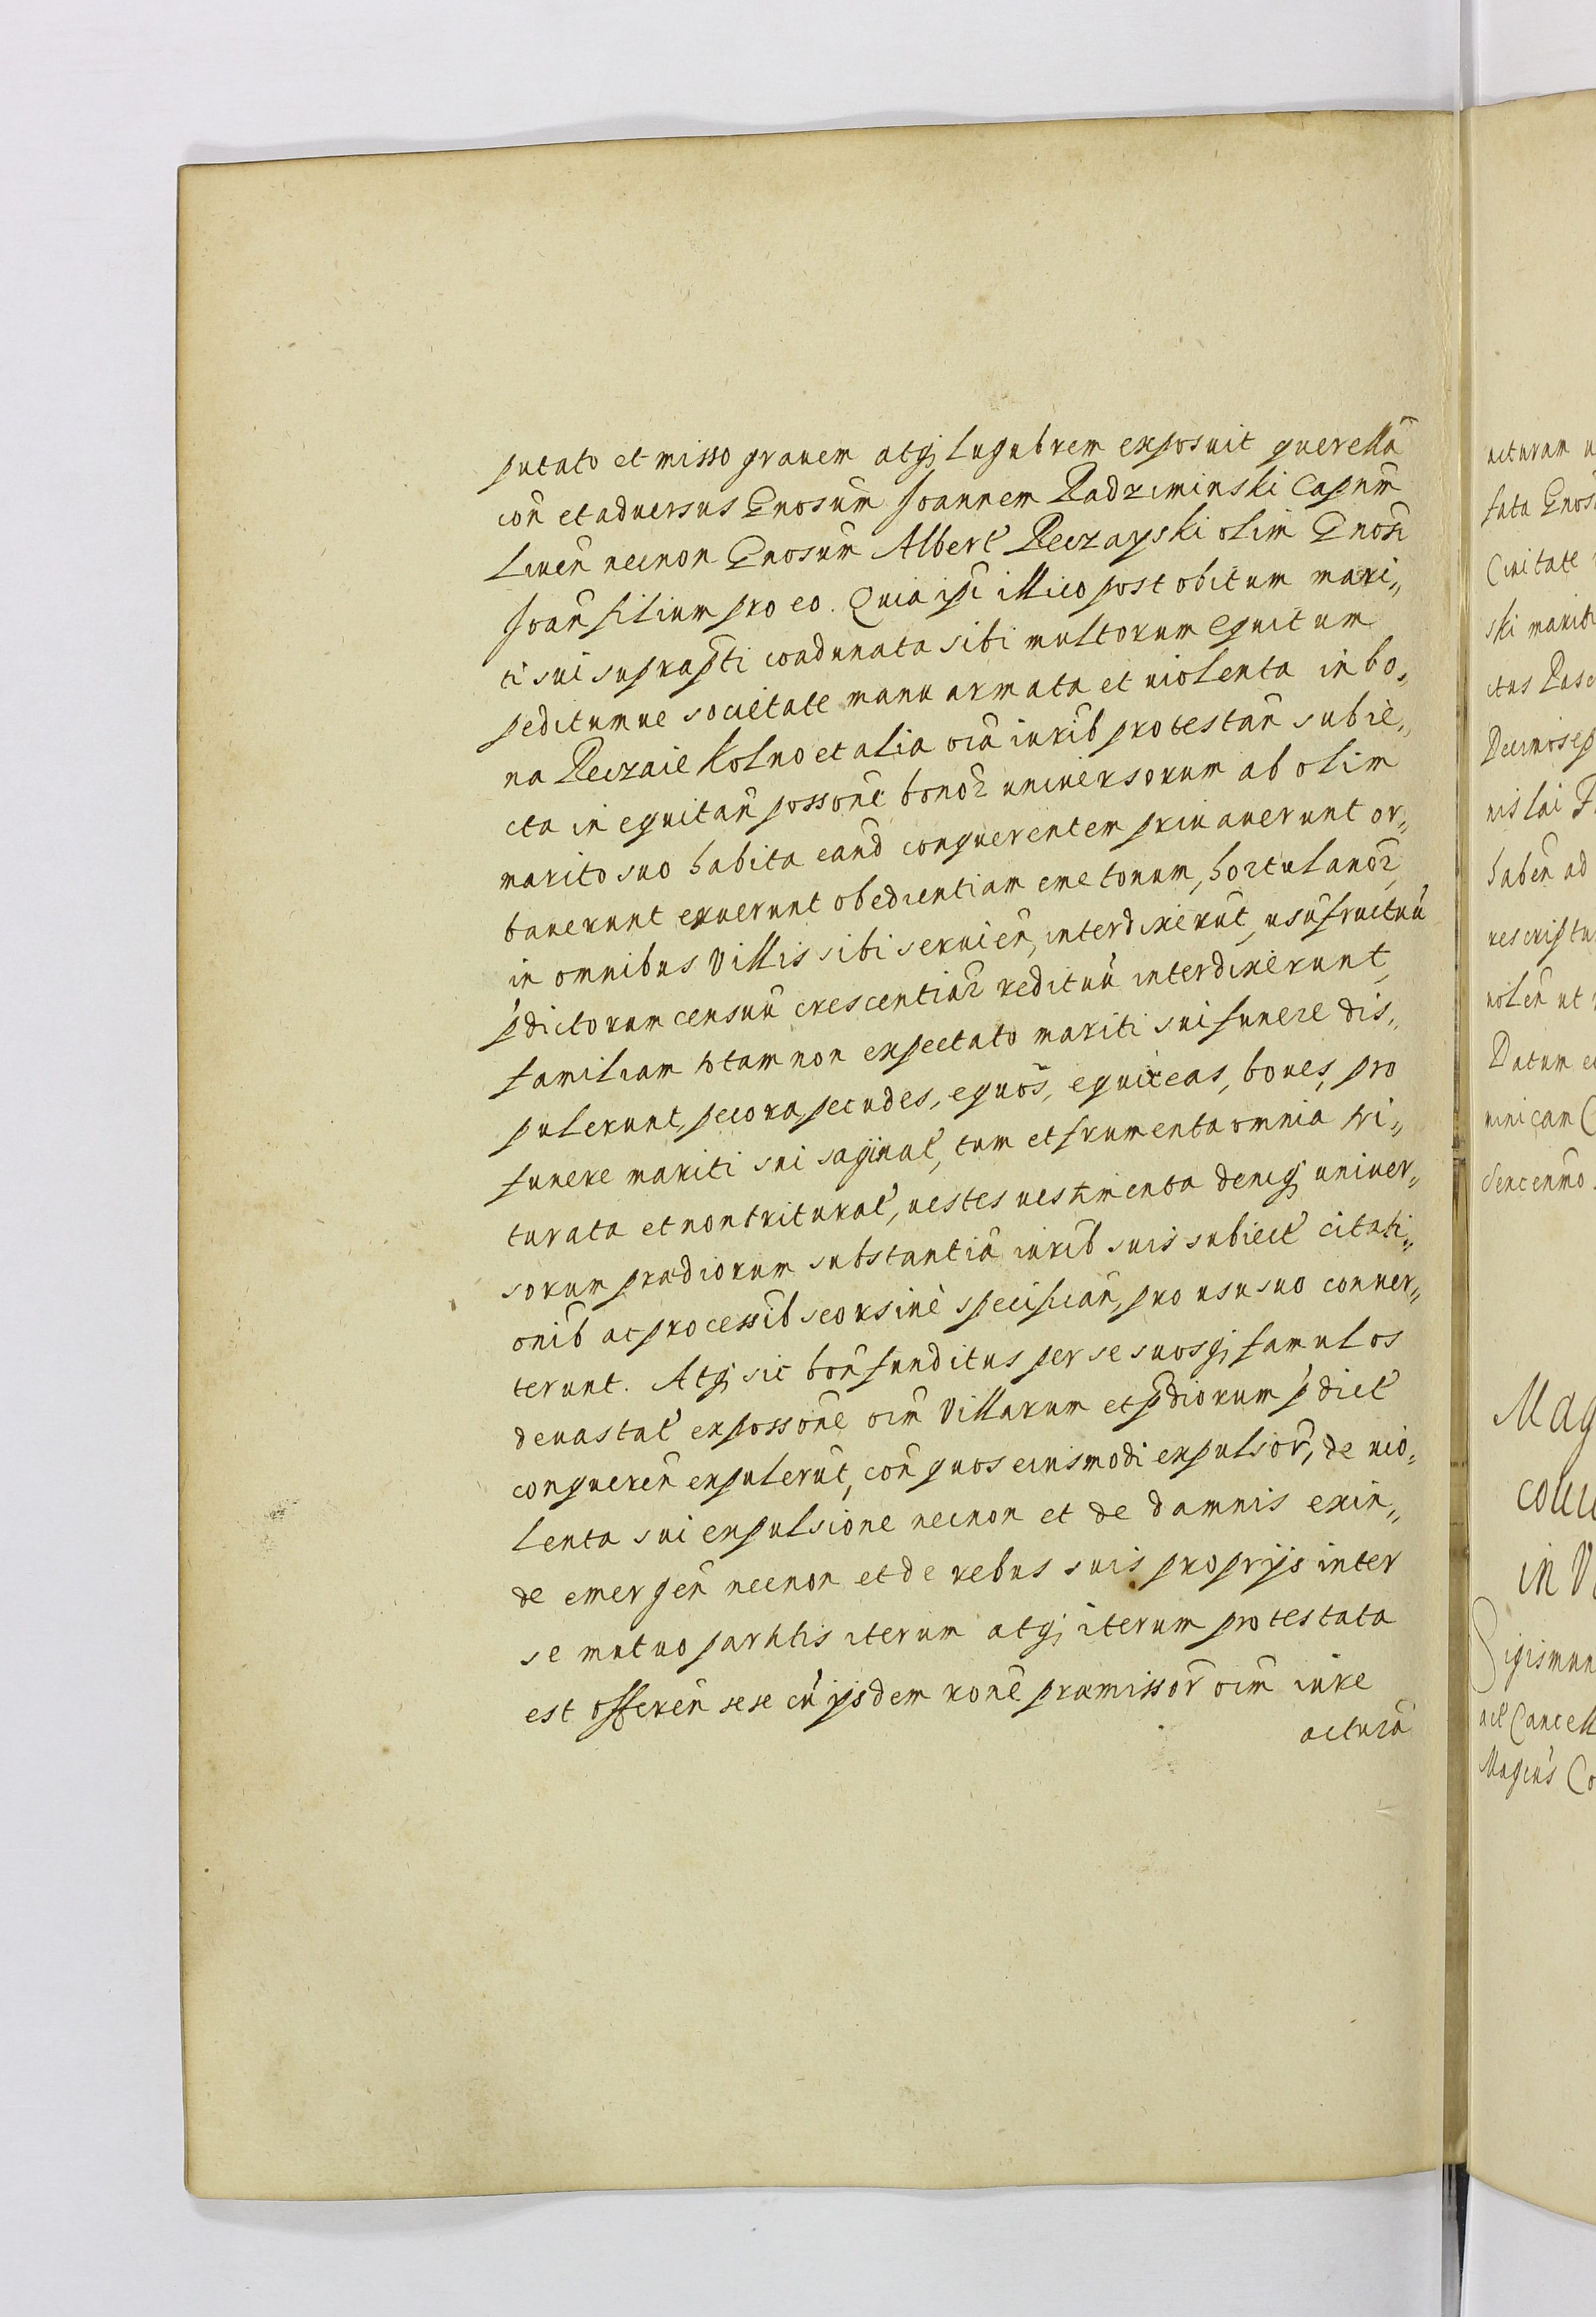 putato et misso grauem atq; lugubrem exposuit querellã
con̄ et aduersus Gnosum̃ Joannem Radziminski Capnm̃
Liuen̄ necnon Gnosum̃ Albert Reczayski olim Gnosi
Joan̄ filium pro eo. Quia ipsi illico post obitum mari„
ti sui suprapti coadunata sibi multorum equitum
peditumue societate manu armata et uiolenta in bo„
na Reczaie Kolno et alia oĩa iurib protestan̄ subie„
cta in equitan̄ possone bonor uniuersorum ab olim
marito suo habita eand conquerentem priuauerunt or„
bauerunt exuerunt obedientiam cmetonum, hortulanor,
in omnibus Villis sibi seruien̄, interdixerũt, usufructuũ
pdictorum censuũ crescentiar redituũ interdixerunt,
familiam totam non expectato mariti sui funere dis„
pulerunt, pecora pecudes, equos, equireas, boues, pro
funere mariti sui saginat, tum et frumenta omnia tri„
turata et non triturat, uestes uestimenta deniq; uniuer„
sorum prædiorum substantiã iurib suis subiect citati„
onib ac processib seorsiue specifican̄, pro usu suo conuer„
terunt. Atq; sic bon̄ funditus per se suosq; famulos
deuastat ex possone oim̃ Villarum et pdiorum pdict
conqueren̄ expulerũt, con̄ quos eiusmodi expulsor̃, de uio„
lenta sui expulsione necnon et de damnis exin„
de emergen̄ necnon et de rebus suis proprijs inter
se mutuo partitis iterum atq; iterum protestata
est offeren̄ sese cũ ijsdem rone præmissor̃ oim̃ iure
acturã
acturam u
fata Gnos
Ciuitate
ski marit
ctus Pasc
Decimosep
nislai
haben̄ ad
rescriptu
uolen̄ ut
Datum
minicam
Sexcenmo
Mag
in
Sigismun
act Cancell
Magcus Co